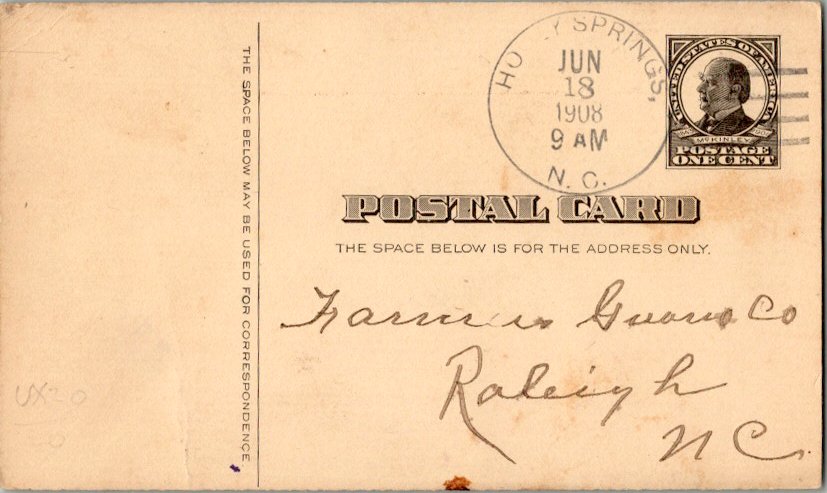 THE SPACE BELOW MAY BE USED FOR CORRESPONDENCE
HOLLY SPRINGS,
JUN
18
1908
9 AM
N. C.
UNITED STATES OF AMERICA
McKINLEY
POSTAGE
ONE CENT
POSTAL CARD
THE SPACE BELOW IS FOR THE ADDRESS ONLY.
Farmers Guano Co
Raleigh
NC.
UX20